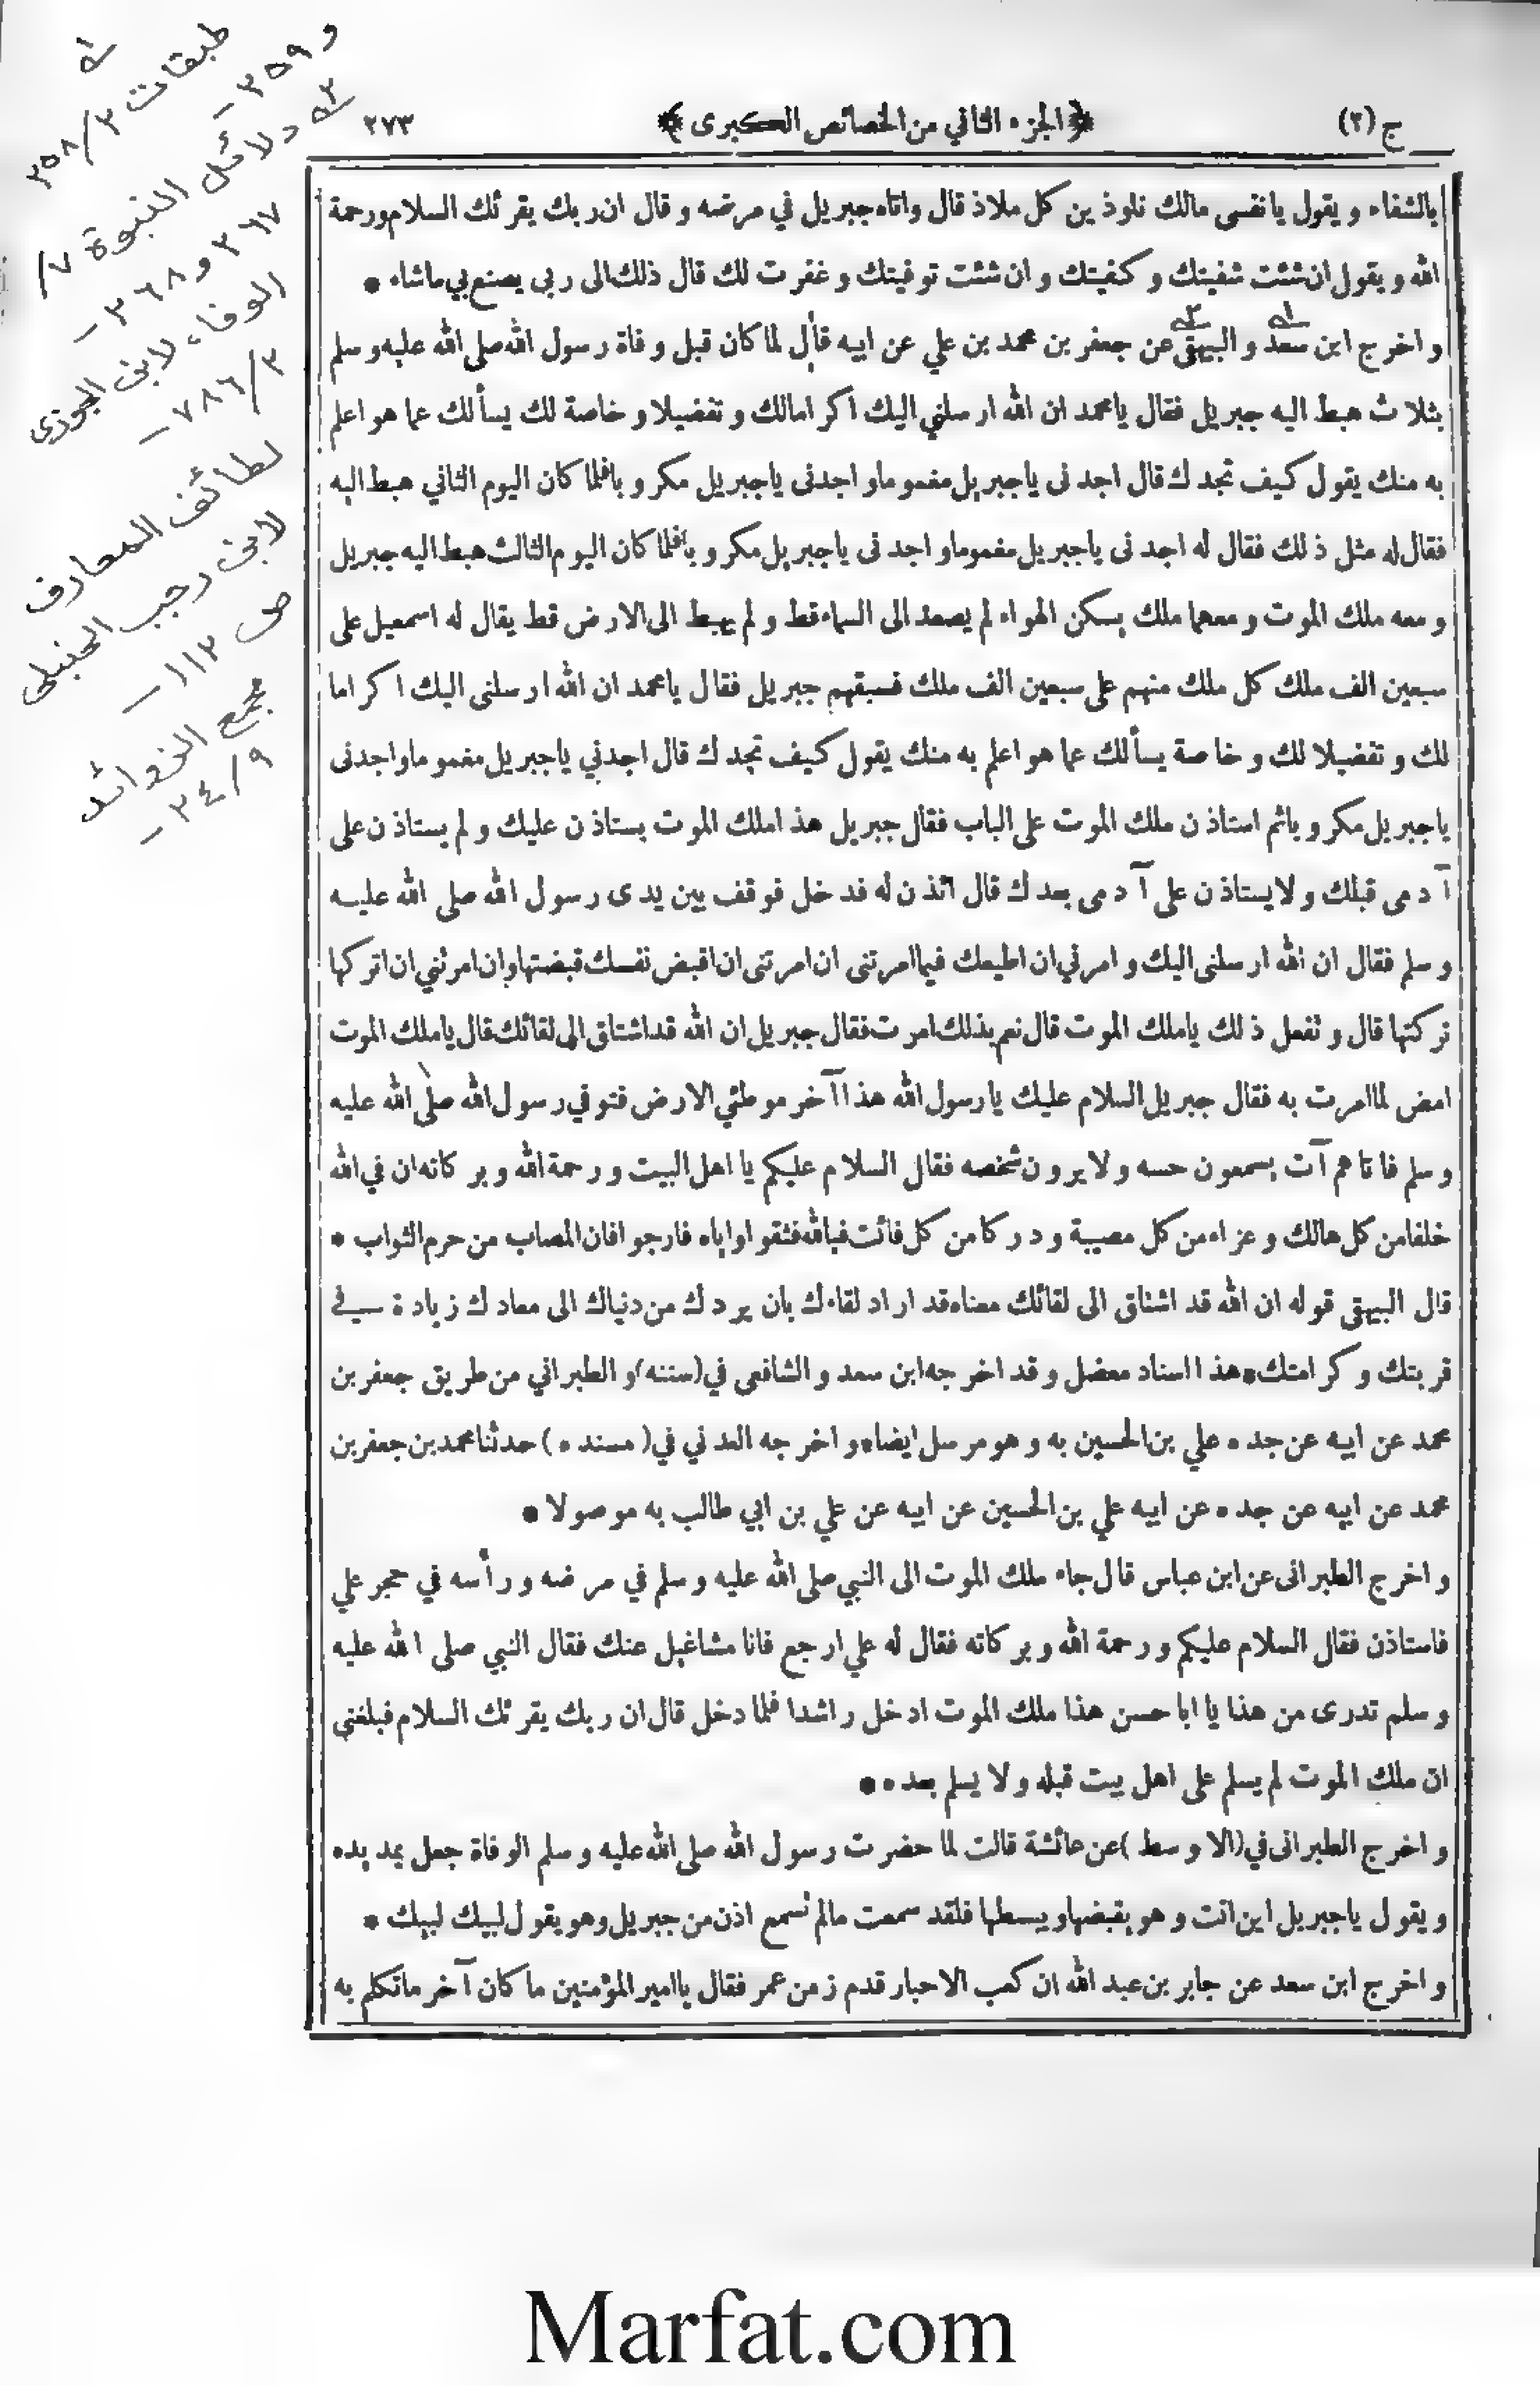 ج (٢)
﴿ الجزء الثاني من الخصائص الكبرى ﴾
٢٧٣
بالشفاء و يقول يا نفسى مالك تلوذين كل ملاذ قال واتاه جبريل في مرضه و قال ان ربك يقرئك السلام ورحمة
الله و يقول ان شئت شفيتك و كفيتك و ان شئت توفيتك و غفرت لك قال ذلك الى ربى يصنع بي ماشاء *
و اخرج ابن سعد و البيهقى عن جعفر بن محمد بن علي عن ابيه قال لما كان قبل وفاة رسول الله صلى الله عليه و سلم
بثلاث هبط اليه جبريل فقال يا محمد ان الله ارسلني اليك اكرامالك و تفضيلا و خاصة لك يسألك عما هو اعلم
به منك يقول كيف تجدك قال اجدنى ياجبريل مغموما و اجدنى ياجبريل مكروبا فلما كان اليوم الثاني هبط اليه
فقال له مثل ذلك فقال له اجدنى ياجبريل مغموما و اجدنى ياجبريل مكروبا فلما كان اليوم الثالث هبط اليه جبريل
و معه ملك الموت و معهما ملك يسكن الهواء لم يصعد الى السماء قط و لم يهبط الى الارض قط يقال له اسمعيل على
سبعين الف ملك كل ملك منهم على سبعين الف ملك فسبقهم جبريل فقال يا محمد ان الله ارسلنى اليك اكراما
لك و تفضيلا لك و خاصة يسألك عما هو اعلم به منك يقول كيف تجدك قال اجدني ياجبريل مغموما و اجدنى
ياجبريل مكروبا ثم استاذن ملك الموت على الباب فقال جبريل هذا ملك الموت يستاذن عليك و لم يستاذن على
آدمى قبلك و لا يستاذن على آدمى بعدك قال ائذن له فدخل فوقف بين يدى رسول الله صلى الله عليه
و سلم فقال ان الله ارسلنى اليك و امرني ان اطيعك فيما امرتنى ان امرتنى ان اقبض نفسك قبضتها و ان امرتني ان اتركها
تركتها قال و تفعل ذلك ياملك الموت قال نعم بذلك امرت فقال جبريل ان الله قد اشتاق الى لقائك قال ياملك الموت
امض لما امرت به فقال جبريل السلام عليك يا رسول الله هذا آخر موطئي الارض فتوفي رسول الله صلى الله عليه
و سلم فاتاهم آت يسمعون حسه ولا يرون شخصه فقال السلام عليكم يا اهل البيت و رحمة الله و بركاته ان في الله
خلفا من كل هالك و عزاء من كل مصيبة و دركا من كل فائت فبالله فثقوا و اياه فارجوا فان المصاب من حرم الثواب *
قال البيهقى قوله ان الله قد اشتاق الى لقائك معناه قد اراد لقاءك بان يردك من دنياك الى معادك زيادة في
قربتك و كرامتك * هذا اسناد معضل و قد اخرجه ابن سعد و الشافعى في (سننه) و الطبراني من طريق جعفر بن
محمد عن ابيه عن جده علي بن الحسين به و هو مرسل ايضا * و اخرجه العدني في (مسنده) حدثنا محمد بن جعفر بن
محمد عن ابيه عن جده عن ابيه علي بن الحسين عن ابيه عن علي بن ابي طالب به موصولا *
و اخرج الطبرانى عن ابن عباس قال جاء ملك الموت الى النبي صلى الله عليه و سلم في مرضه و رأسه في حجر علي
فاستاذن فقال السلام عليكم و رحمة الله و بركاته فقال له علي ارجع فانا مشاغيل عنك فقال النبي صلى الله عليه
و سلم تدرى من هذا يا ابا حسن هذا ملك الموت ادخل راشدا فلما دخل قال ان ربك يقرئك السلام فبلغنى
ان ملك الموت لم يسلم على اهل بيت قبله و لا يسلم بعده *
و اخرج الطبرانى في (الاوسط) عن عائشة قالت لما حضرت رسول الله صلى الله عليه و سلم الوفاة جعل يمد يده
و يقول ياجبريل اين انت و هو يقبضها و يبسطها فلقد سمعت مالم تسمع اذن من جبريل وهو يقول لبيك لبيك *
و اخرج ابن سعد عن جابر بن عبد الله ان كعب الاحبار قدم زمن عمر فقال يا امير المؤمنين ما كان آخر ما تكلم به
طبقات ٢/٢٥٨
و ٢٥٩ -
دلائل النبوة ٧/
٢٦٧ و ٢٦٨ -
الوفاء لابن الجوزى
٢/٧٨٦ -
لطائف المعارف
لابن رجب الحنبلى
ص ١١٢ -
مجمع الزوائد
٩/٢٤ -
Marfat.com